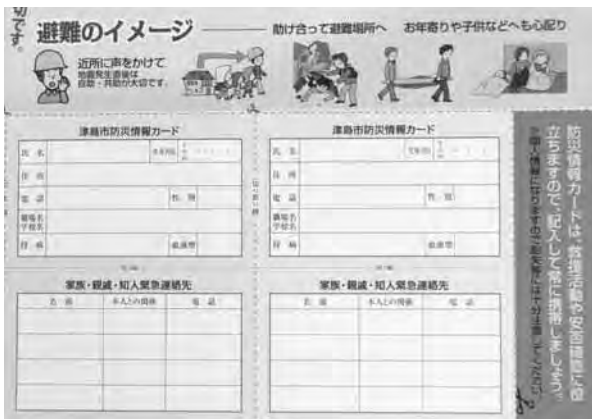 切です。
避難のイメージ
助け合って避難場所へ
お年寄りや子供などへも心配り
近所に声をかけて
地震発生直後は
自助・共助が大切です。
津島市防災情報カード
氏名
生年月日
住所
電話
性別
職場名
学校名
持病
血液型
家族・親戚・知人緊急連絡先
名前
本人との関係
電話
津島市防災情報カード
氏名
生年月日
住所
電話
性別
職場名
学校名
持病
血液型
家族・親戚・知人緊急連絡先
名前
本人との関係
電話
防災情報カードは、救援活動や安否確認に役
立ちますので、記入して常に携帯しましょう。